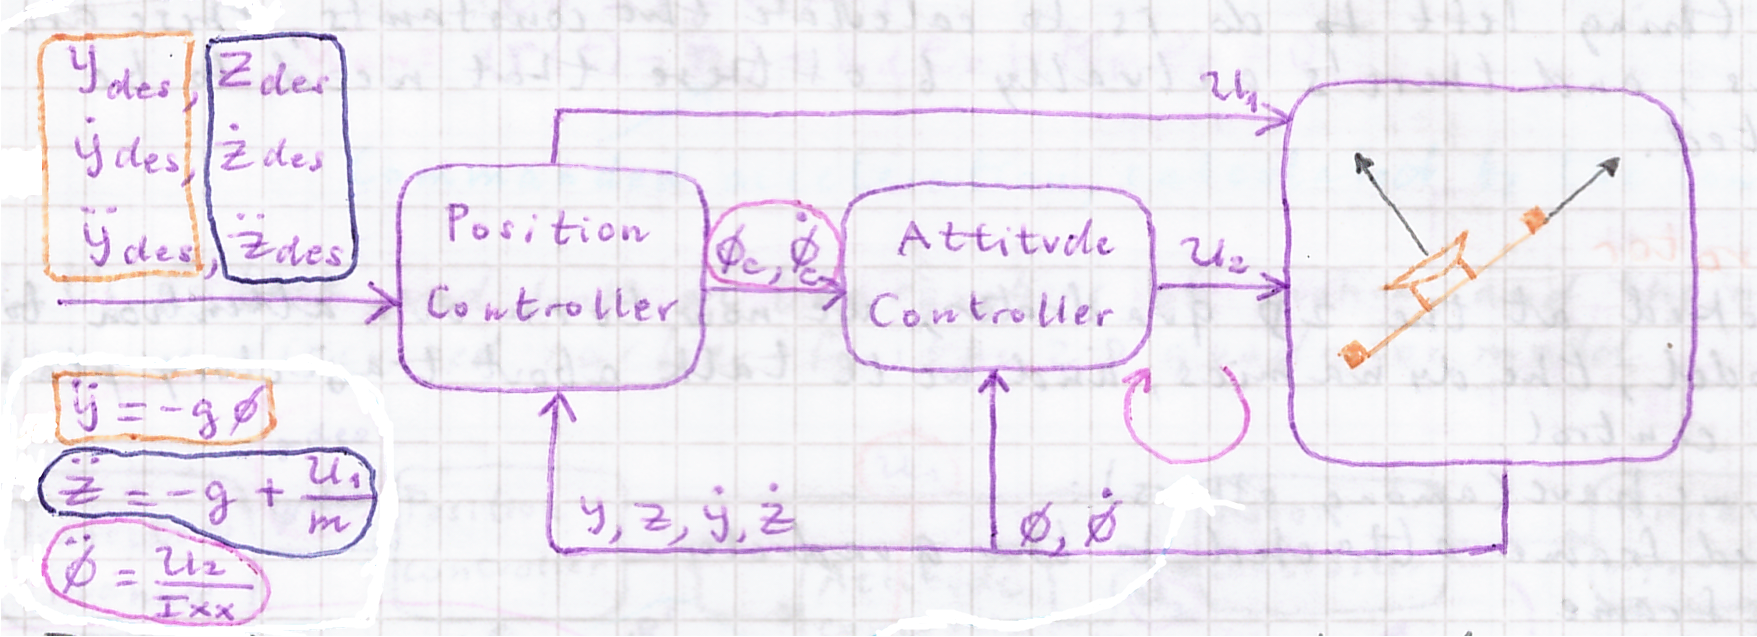 y_des, z_des
ẏ_des, ż_des
ÿ_des, z̈_des
u₁
Position
Controller
ϕ_c, ϕ̇_c
Attitude
Controller
u₂
ÿ = -gϕ
z̈ = -g + u₁/m
ϕ̈ = u₂/Ixx
y, z, ẏ, ż
ϕ, ϕ̇